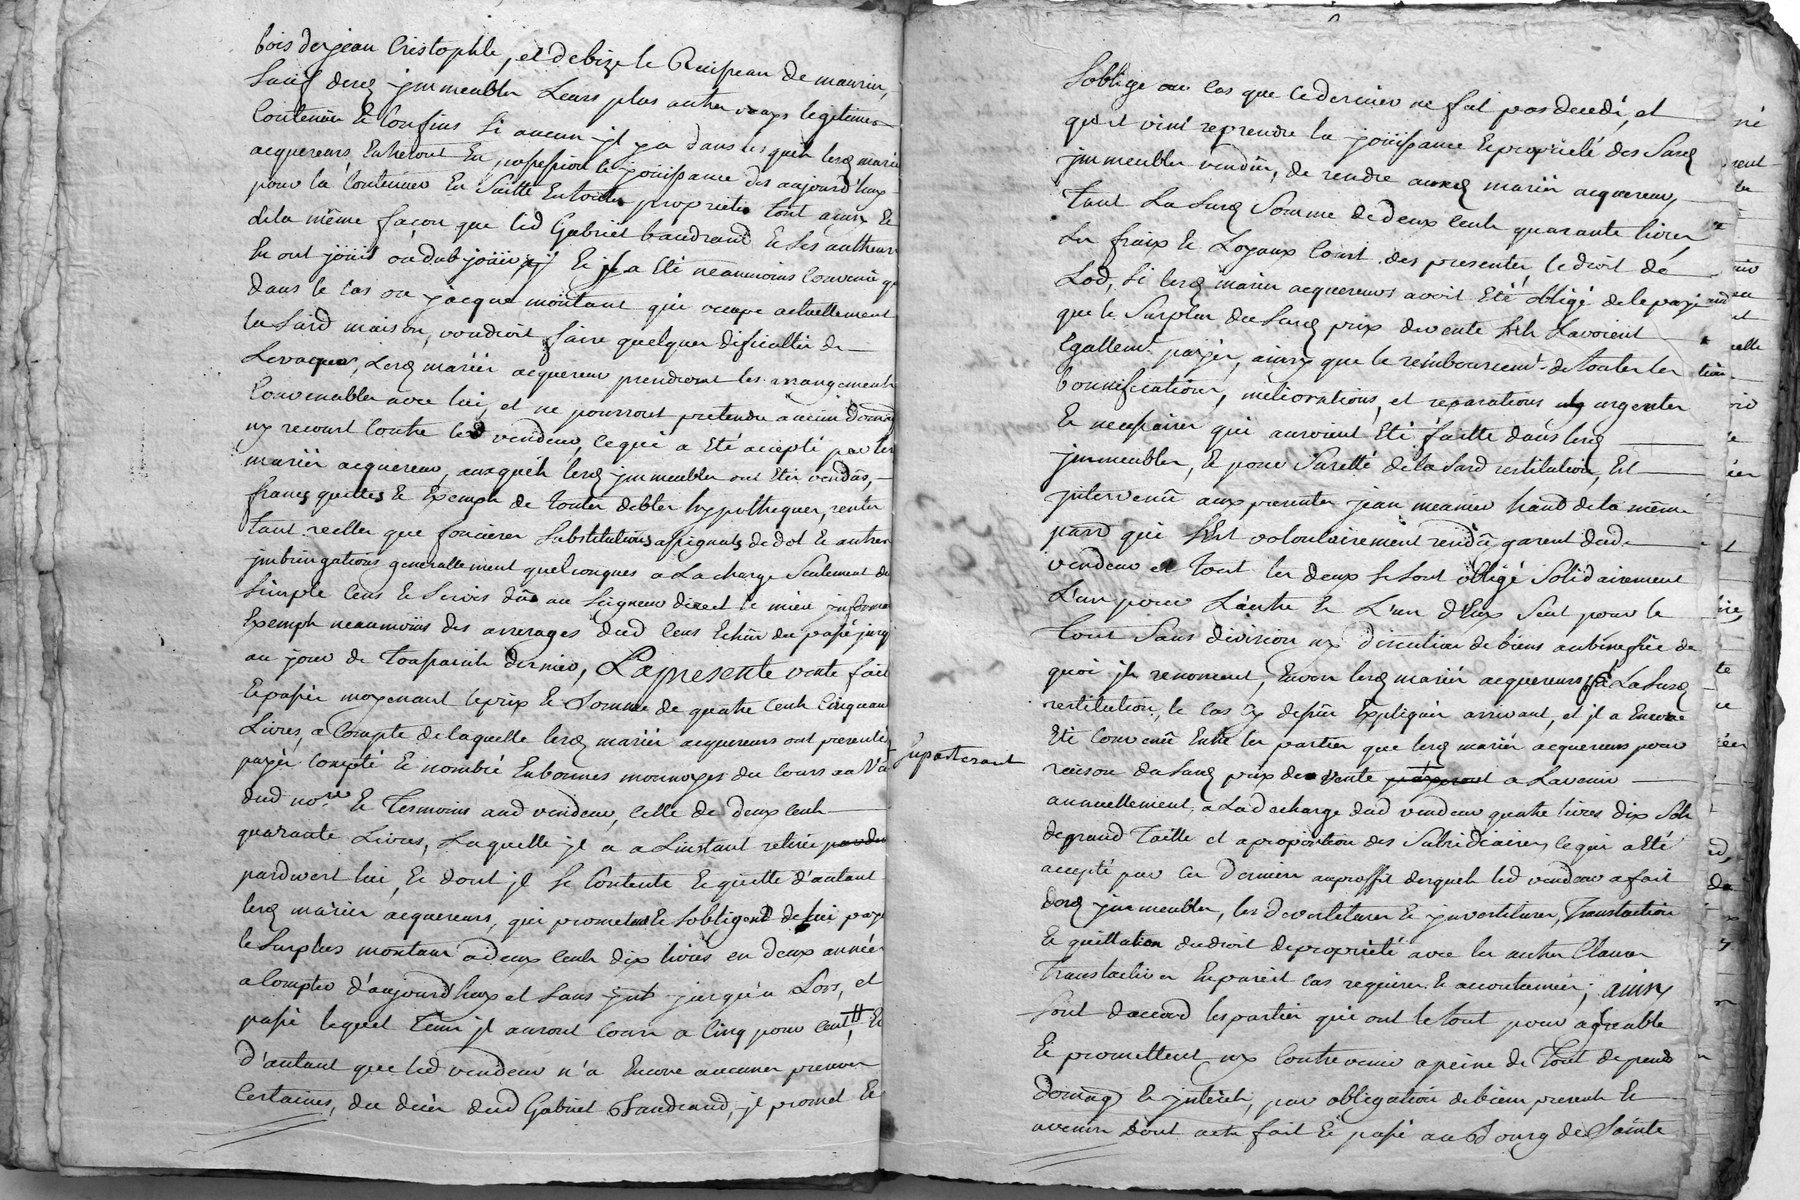 bois de jean Cristophle, et de bize le Ruisseau de maurin,
Sauf desd. jmmeubles Leurs plus autres vrays legitimes
Contenüe & Confins Si aucun jl y a dans lesquels lesd mariés
acquereurs Entreront En possession & joüissance des aujourd'huy
pour la Continuer En Suitte En toutte proprieté tout ainsy &
de la même façon que led Gabriel baudrand & Ses autheurs
En ont joüis ou dub joüir Et jl a Eté neanmoins Convenü q
dans le Cas ou jacques montant qui occupe actuellement
la Said maison, voudroit faire quelques dificultés de
Levaquer, Lesd mariés acquereurs prendront les arrangements
Convenables avec lui, et ne pourront pretendre aucun domag
ny recourt Contre led vendeur, ce qui a Eté accepté par les
mariés acquereurs, auxquels lesd jmmeubles ont Etés vendus,
francs quittes & Exempts de toutes debtes hypotheques, rentes
tant reelles que foncieres Substitutions assignats de dot & autres
jmbrigations generallement quelconques a La charge Seulement du
Simple Cens & Servis dûs au Seigneur direct le mieu jnformé
Exempts neaumoins des arrerages dud Cens Echûs du passé jusq
au jour de Toussaints dernier, La presente vente fait
& passée moyenant le prix & Somme de quatre Cents Cinquan
Livres, a Compte de laquelle lesd mariés acquereurs ont presente
payés Compté & nombré En bonnes monnoyes du Cours a la vüe
dud no.re & Temoins aud vendeur, celle de deux Cents
quarante Livres, Laquelle jl a a L'instant retirée pardes
pardvert lui, & dont jl Se Contente & quitte d'autant
lesd mariés acquereurs, qui promettent & S'obligent de lui paye
le Surplus montant a deux Cents dix livres en deux années
a Compter d'aujourd'huy et Sans jnt jusqu'a Lors, et
passé lequel Tems jl auront Cours a Cinq pour Cent, Et
D'autant que led vendeur n'a Encore aucunes preuves
Certaines, du decés dud Gabriel Baudrand, jl promet &
S'oblige au Cas que Ce dernier ne fut pas decedé, et
qu'il vint reprendre la joüissance & proprieté des Susd
jmmeubles vendûs, de rendre auxd mariés acquereurs,
Tant La Susd Somme de deux Cents quarante livres
Les fraix & Loyaux Couts des presentes, le droit de
Lod, Si lesd mariés acquereurs avoit Eté obligé de le payé
que le Surplus du Susd prix de vente S'ils L'avoient
Egallemt payés, ainsy que le remboursemt de toutes les
bonnifications, meliorations, et reparations urgentes
& necessaires qui auroient Eté faitte dans lesd
jmmeubles, & pour Suretté de la Sard restitution, Est
jntervenû aux presentes jean meunier habt de la même
parr qui S'est volontairement rendû garent dud
vendeur et tout les deux Se Sont obligé Solidairement
L'un pour L'autre & L'un D'Eux Seul pour le
Tout Sans division ny discution de biens au benefice de
quoi jls renoncent, Envers lesd mariés acquereurs a La Susd
restitution, le Cas Cy dessus Expliqué arrivant, et jl a Encore
Eté Convenû Entre les parties que lesd mariés acquereurs pour
Supporteront
raison du Susd prix de vente payeront a L'avenir
annuellement, a La decharge dud vendeur quatre livres dix Sols
de grand Taille et a proportion des Subsidiaires, ce qui a Eté
accepté par Ces Derniers au proffit desquels led vendeur a fait
desd jmmeubles, les devestitures & jnvestitures, Translation
& quittation du droit de proprieté avec les autres Clauses
Translatives En pareil Cas requises & accoutumées; ainsy
Sont d'accord les parties qui ont le tout pour agreable
& promettent ny Contrevenir a peine de Tout depends
domag & jnterêts, par obligation de biens presents &
avenir Dont acte fait & passé au Bourg de Sainte